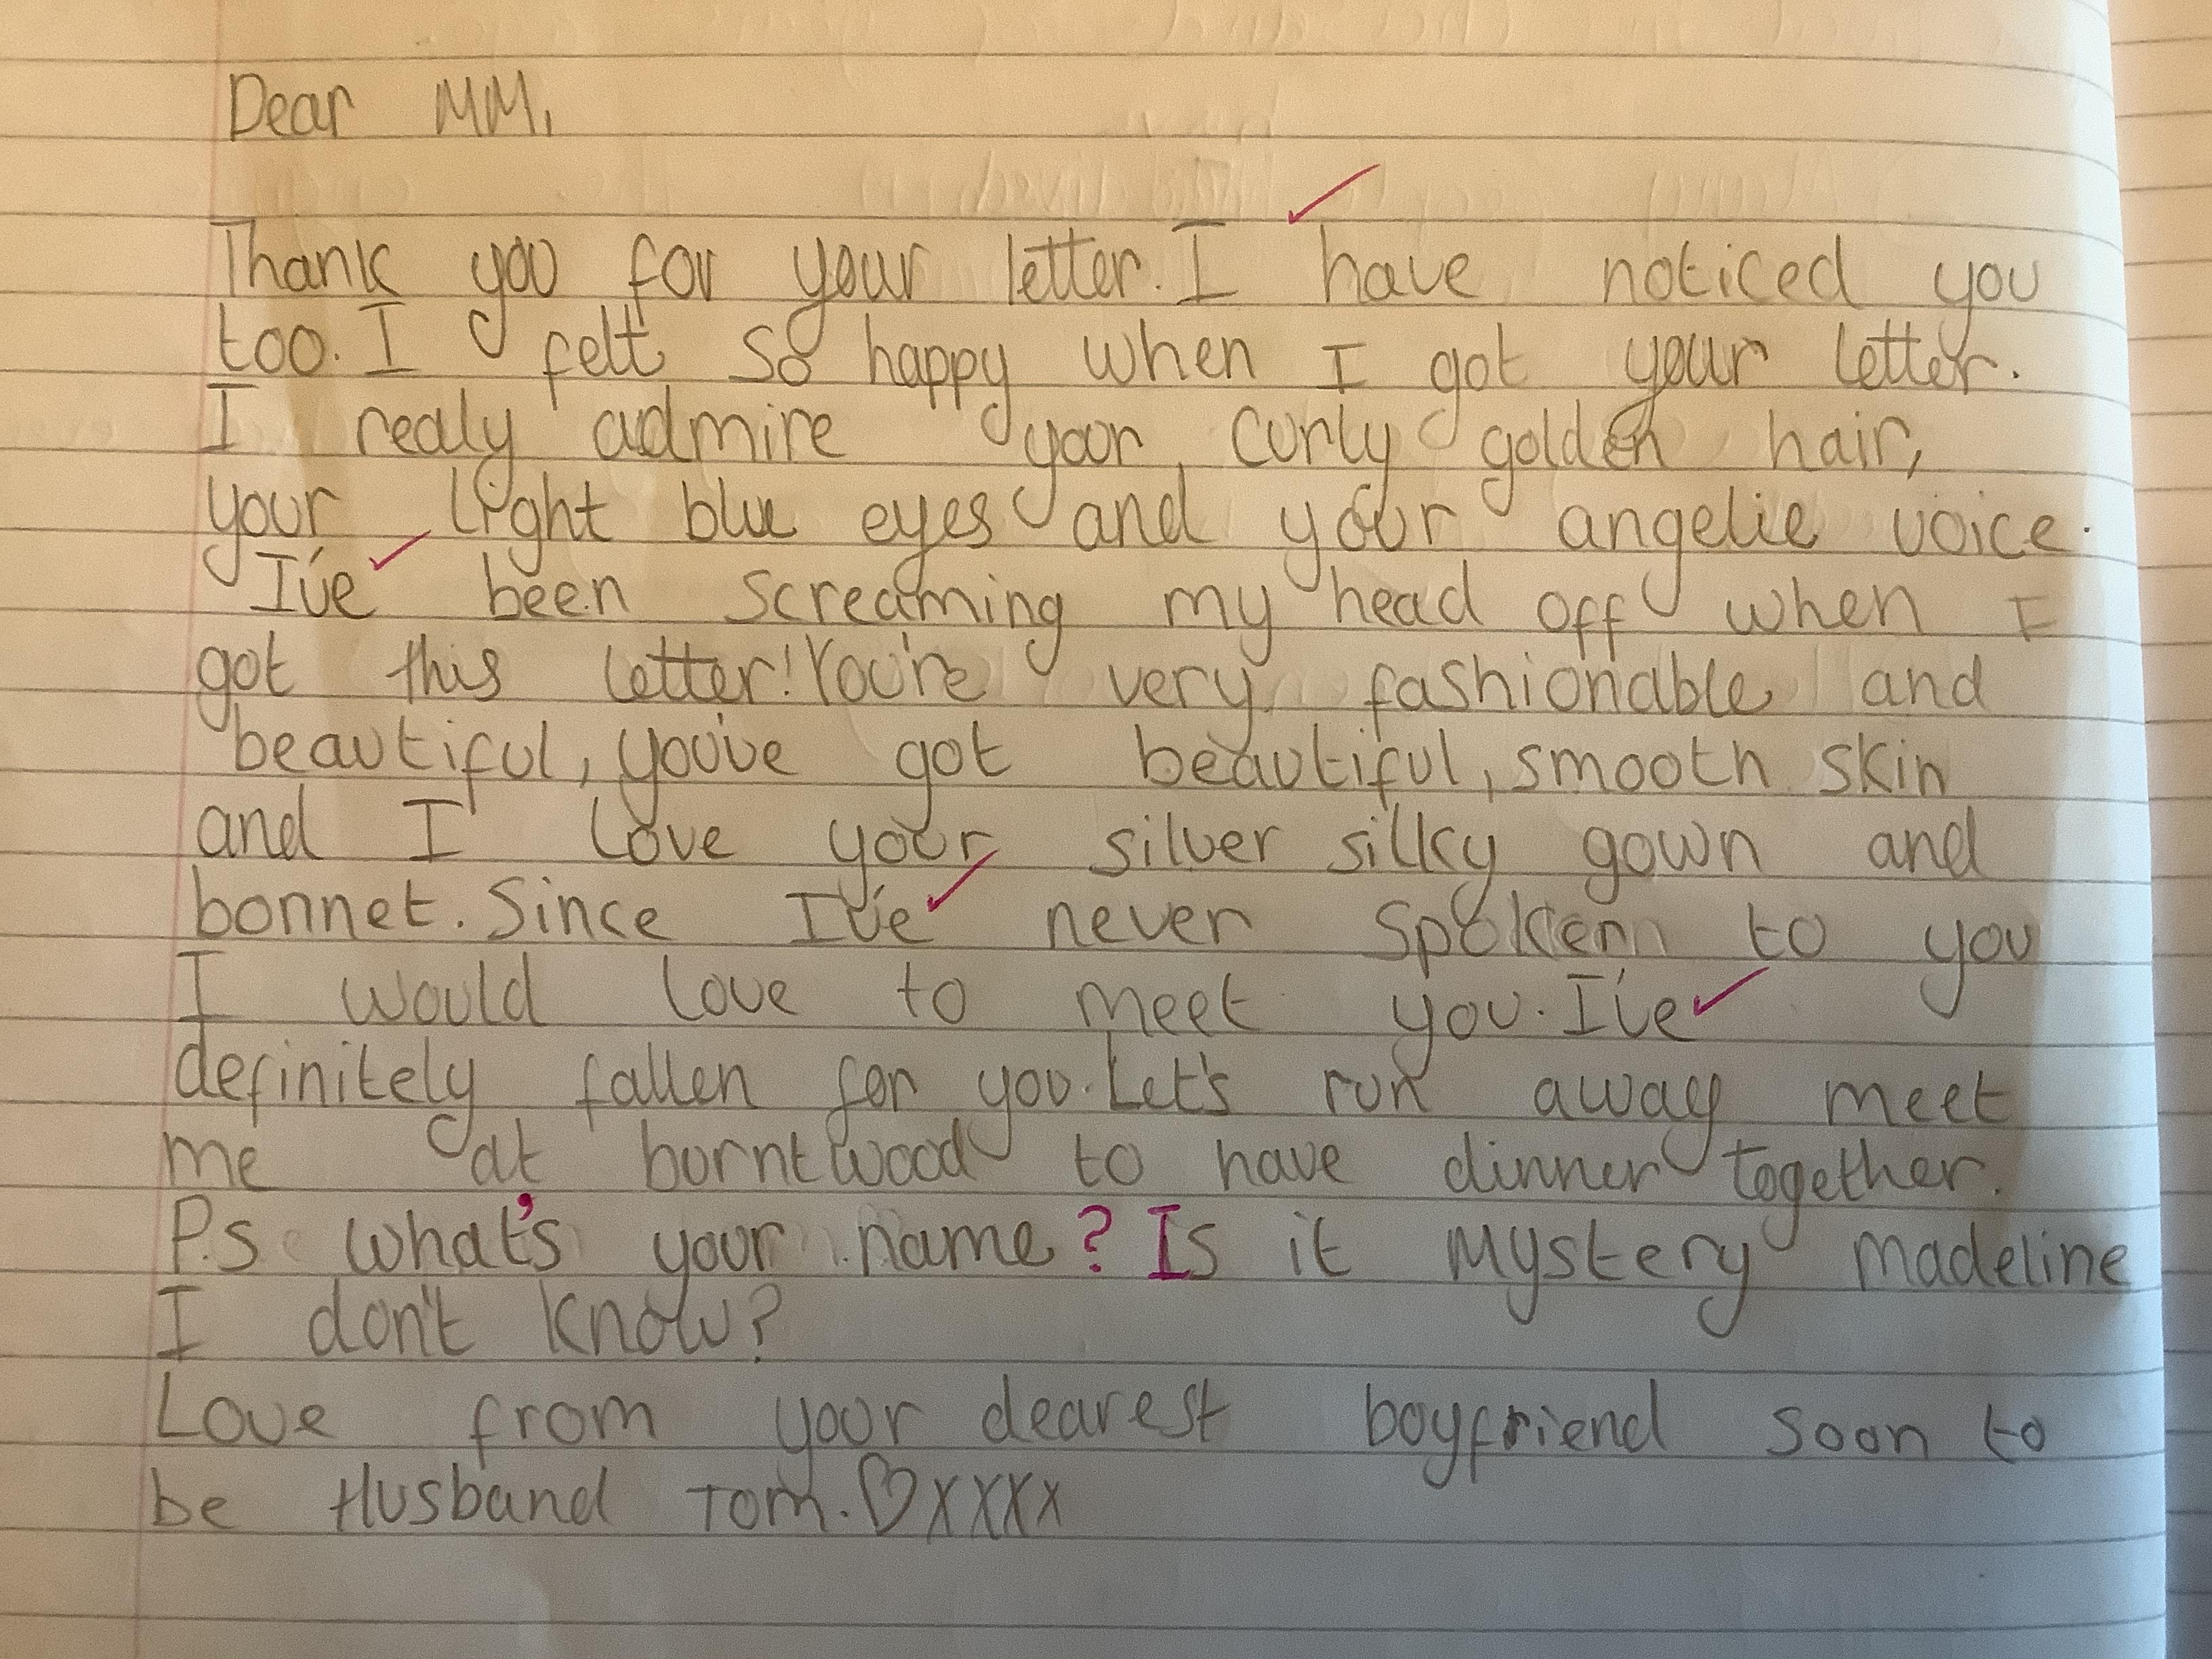 Dear MM,
Thank you for your letter. I have noticed you
too. I felt so happy when I got your letter.
I realy admire your curly golden hair,
your light blue eyes and your angelic voice.
I've been screaming my head off when I
got this letter! You're very fashionable and
beautiful, you've got beautiful, smooth skin
and I love your silver silky gown and
bonnet. Since I've never spoken to you
I would love to meet you. I've
definitely fallen for you. Let's run away meet
me at burntwood to have dinner together.
P.s what's your name? Is it Mystery madeline
I don't know?
Love from your dearest boyfriend soon to
be Husband Tom. ♡xxxx